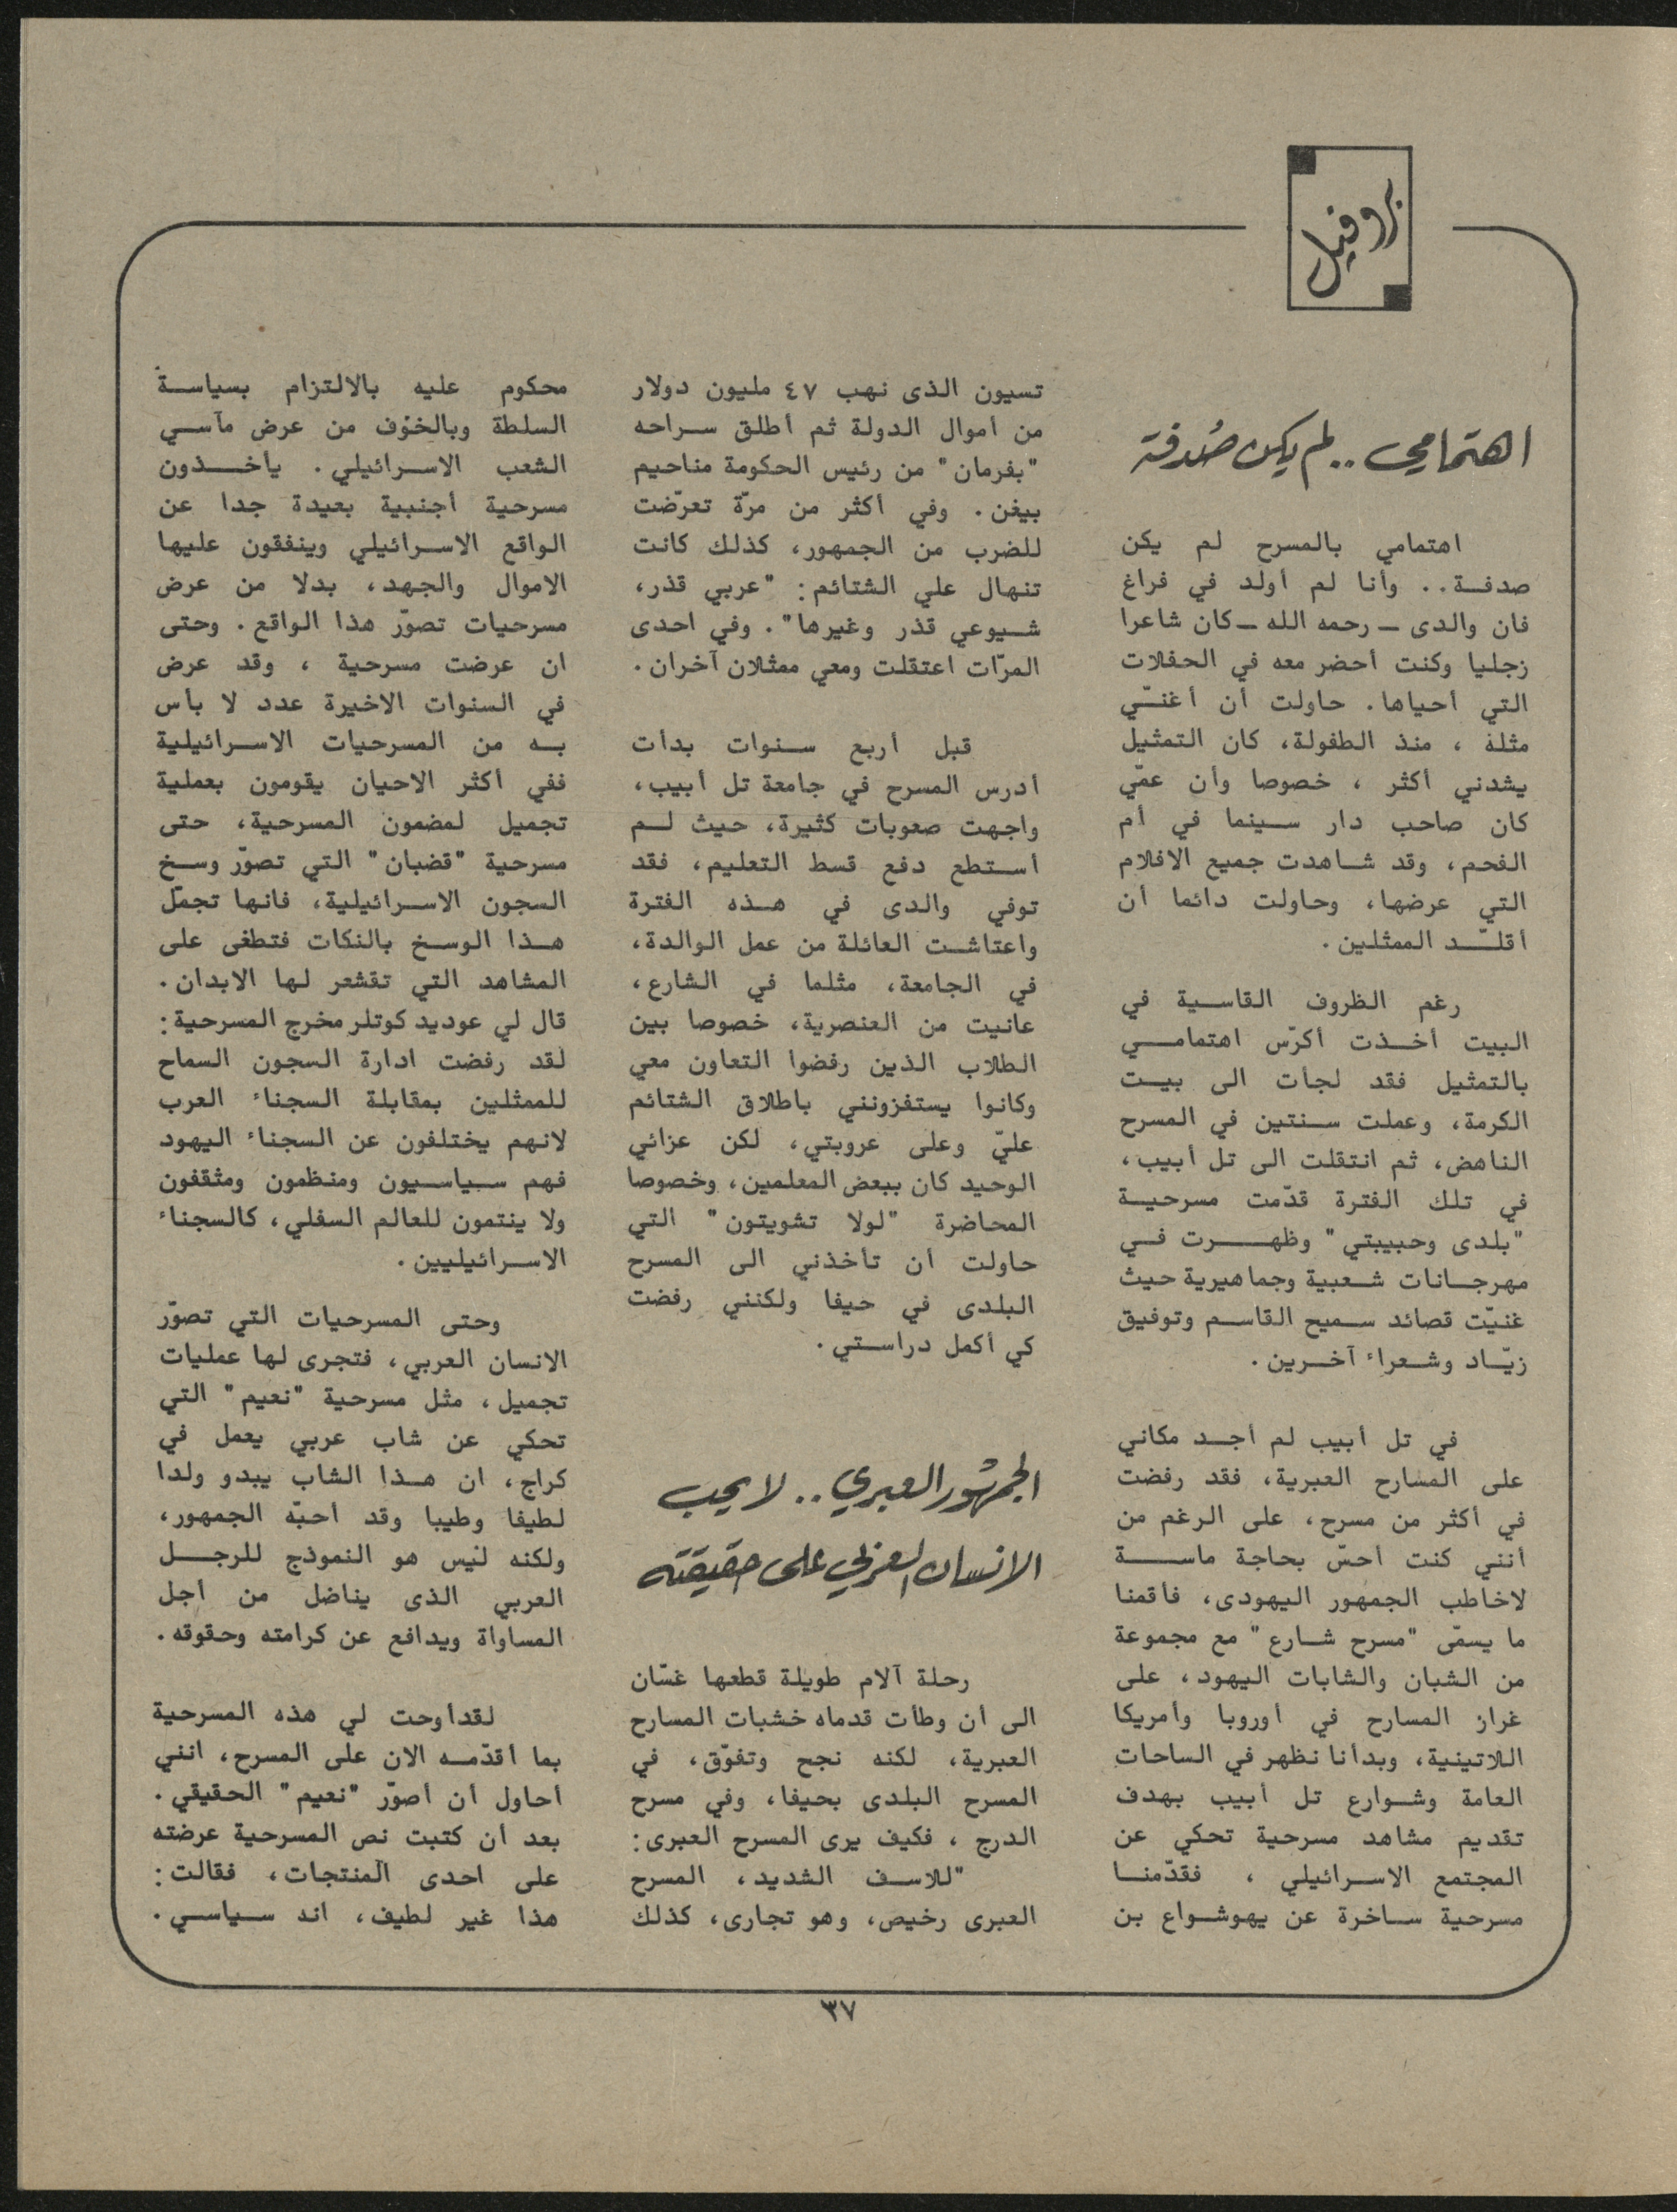 بروفيل
اهتمامي.. لم يكن صُدفة
اهتمامي بالمسرح لم يكن
صدفة.. وأنا لم أولد في فراغ
فان والدى ــ رحمه الله ــ كان شاعرا
زجليا وكنت أحضر معه في الحفلات
التي أحياها. حاولت أن أغنّي
مثلة ، منذ الطفولة، كان التمثيل
يشدني أكثر ، خصوصا وأن عمّي
كان صاحب دار سينما في أم
الفحم، وقد شاهدت جميع الافلام
التي عرضها، وحاولت دائما أن
أقلّد الممثلين.
رغم الظروف القاسية في
البيت أخذت أكرّس اهتمامي
بالتمثيل فقد لجأت الى بيت
الكرمة، وعملت سنتين في المسرح
الناهض، ثم انتقلت الى تل أبيب،
في تلك الفترة قدّمت مسرحية
"بلدى وحبيبتي" وظهرت في
مهرجانات شعبية وجماهيرية حيث
غنيّت قصائد سميح القاسم وتوفيق
زيّاد وشعراء آخرين.
في تل أبيب لم أجد مكاني
على المسارح العبرية، فقد رفضت
في أكثر من مسرح، على الرغم من
أنني كنت أحسّ بحاجة ماسة
لاخاطب الجمهور اليهودى، فأقمنا
ما يسمّى "مسرح شارع" مع مجموعة
من الشبان والشابات اليهود، على
غراز المسارح في أوروبا وأمريكا
اللاتينية، وبدأنا نظهر في الساحات
العامة وشوارع تل أبيب بهدف
تقديم مشاهد مسرحية تحكي عن
المجتمع الاسرائيلي ، فقدّمنا
مسرحية ساخرة عن يهوشواع بن
تسيون الذى نهب ٤٧ مليون دولار
من أموال الدولة ثم أطلق سراحه
"بفرمان" من رئيس الحكومة مناحيم
بيغن. وفي أكثر من مرّة تعرّضت
للضرب من الجمهور، كذلك كانت
تنهال علي الشتائم: "عربي قذر،
شيوعي قذر وغيرها". وفي احدى
المرّات اعتقلت ومعي ممثلان آخران.
قبل أربع سنوات بدأت
أدرس المسرح في جامعة تل أبيب،
واجهت صعوبات كثيرة، حيث لم
أستطع دفع قسط التعليم، فقد
توفي والدى في هذه الفترة
واعتاشت العائلة من عمل الوالدة،
في الجامعة، مثلما في الشارع،
عانيت من العنصرية، خصوصا بين
الطلاب الذين رفضوا التعاون معي
وكانوا يستفزونني باطلاق الشتائم
عليّ وعلى عروبتي، لكن عزائي
الوحيد كان ببعض المعلمين، وخصوصا
المحاضرة "لولا تشويتون" التي
حاولت أن تأخذني الى المسرح
البلدى في حيفا ولكنني رفضت
كي أكمل دراستي.
الجمهُور العبري.. لا يحب
الانسان العربي على حقيقته
رحلة آلام طويلة قطعها غسّان
الى أن وطأت قدماه خشبات المسارح
العبرية، لكنه نجح وتفوّق، في
المسرح البلدى بحيفا، وفي مسرح
الدرج ، فكيف يرى المسرح العبرى:
"للاسف الشديد، المسرح
العبرى رخيص، وهو تجارى، كذلك
محكوم عليه بالالتزام بسياسة
السلطة وبالخوف من عرض مآسي
الشعب الاسرائيلي. يأخذون
مسرحية أجنبية بعيدة جدا عن
الواقع الاسرائيلي وينفقون عليها
الاموال والجهد، بدلا من عرض
مسرحيات تصوّر هذا الواقع. وحتى
ان عرضت مسرحية ، وقد عرض
في السنوات الاخيرة عدد لا بأس
به من المسرحيات الاسرائيلية
ففي أكثر الاحيان يقومون بعملية
تجميل لمضمون المسرحية، حتى
مسرحية "قضبان" التي تصوّر وسخ
السجون الاسرائيلية، فانها تجمّل
هذا الوسخ بالنكات فتطغى على
المشاهد التي تقشعر لها الابدان.
قال لي عوديد كوتلر مخرج المسرحية:
لقد رفضت ادارة السجون السماح
للممثلين بمقابلة السجناء العرب
لانهم يختلفون عن السجناء اليهود
فهم سياسيون ومنظمون ومثقفون
ولا ينتمون للعالم السفلي، كالسجناء
الاسرائيليين.
وحتى المسرحيات التي تصوّر
الانسان العربي، فتجرى لها عمليات
تجميل، مثل مسرحية "نعيم" التي
تحكي عن شاب عربي يعمل في
كراج، ان هذا الشاب يبدو ولدا
لطيفا وطيبا وقد أحبّه الجمهور،
ولكنه ليس هو النموذج للرجل
العربي الذى يناضل من أجل
المساواة ويدافع عن كرامته وحقوقه.
لقدأوحت لي هذه المسرحية
بما أقدّمه الان على المسرح، انني
أحاول أن أصوّر "نعيم" الحقيقي.
بعد أن كتبت نص المسرحية عرضته
على احدى المنتجات، فقالت:
هذا غير لطيف، انه سياسي.
٣٧